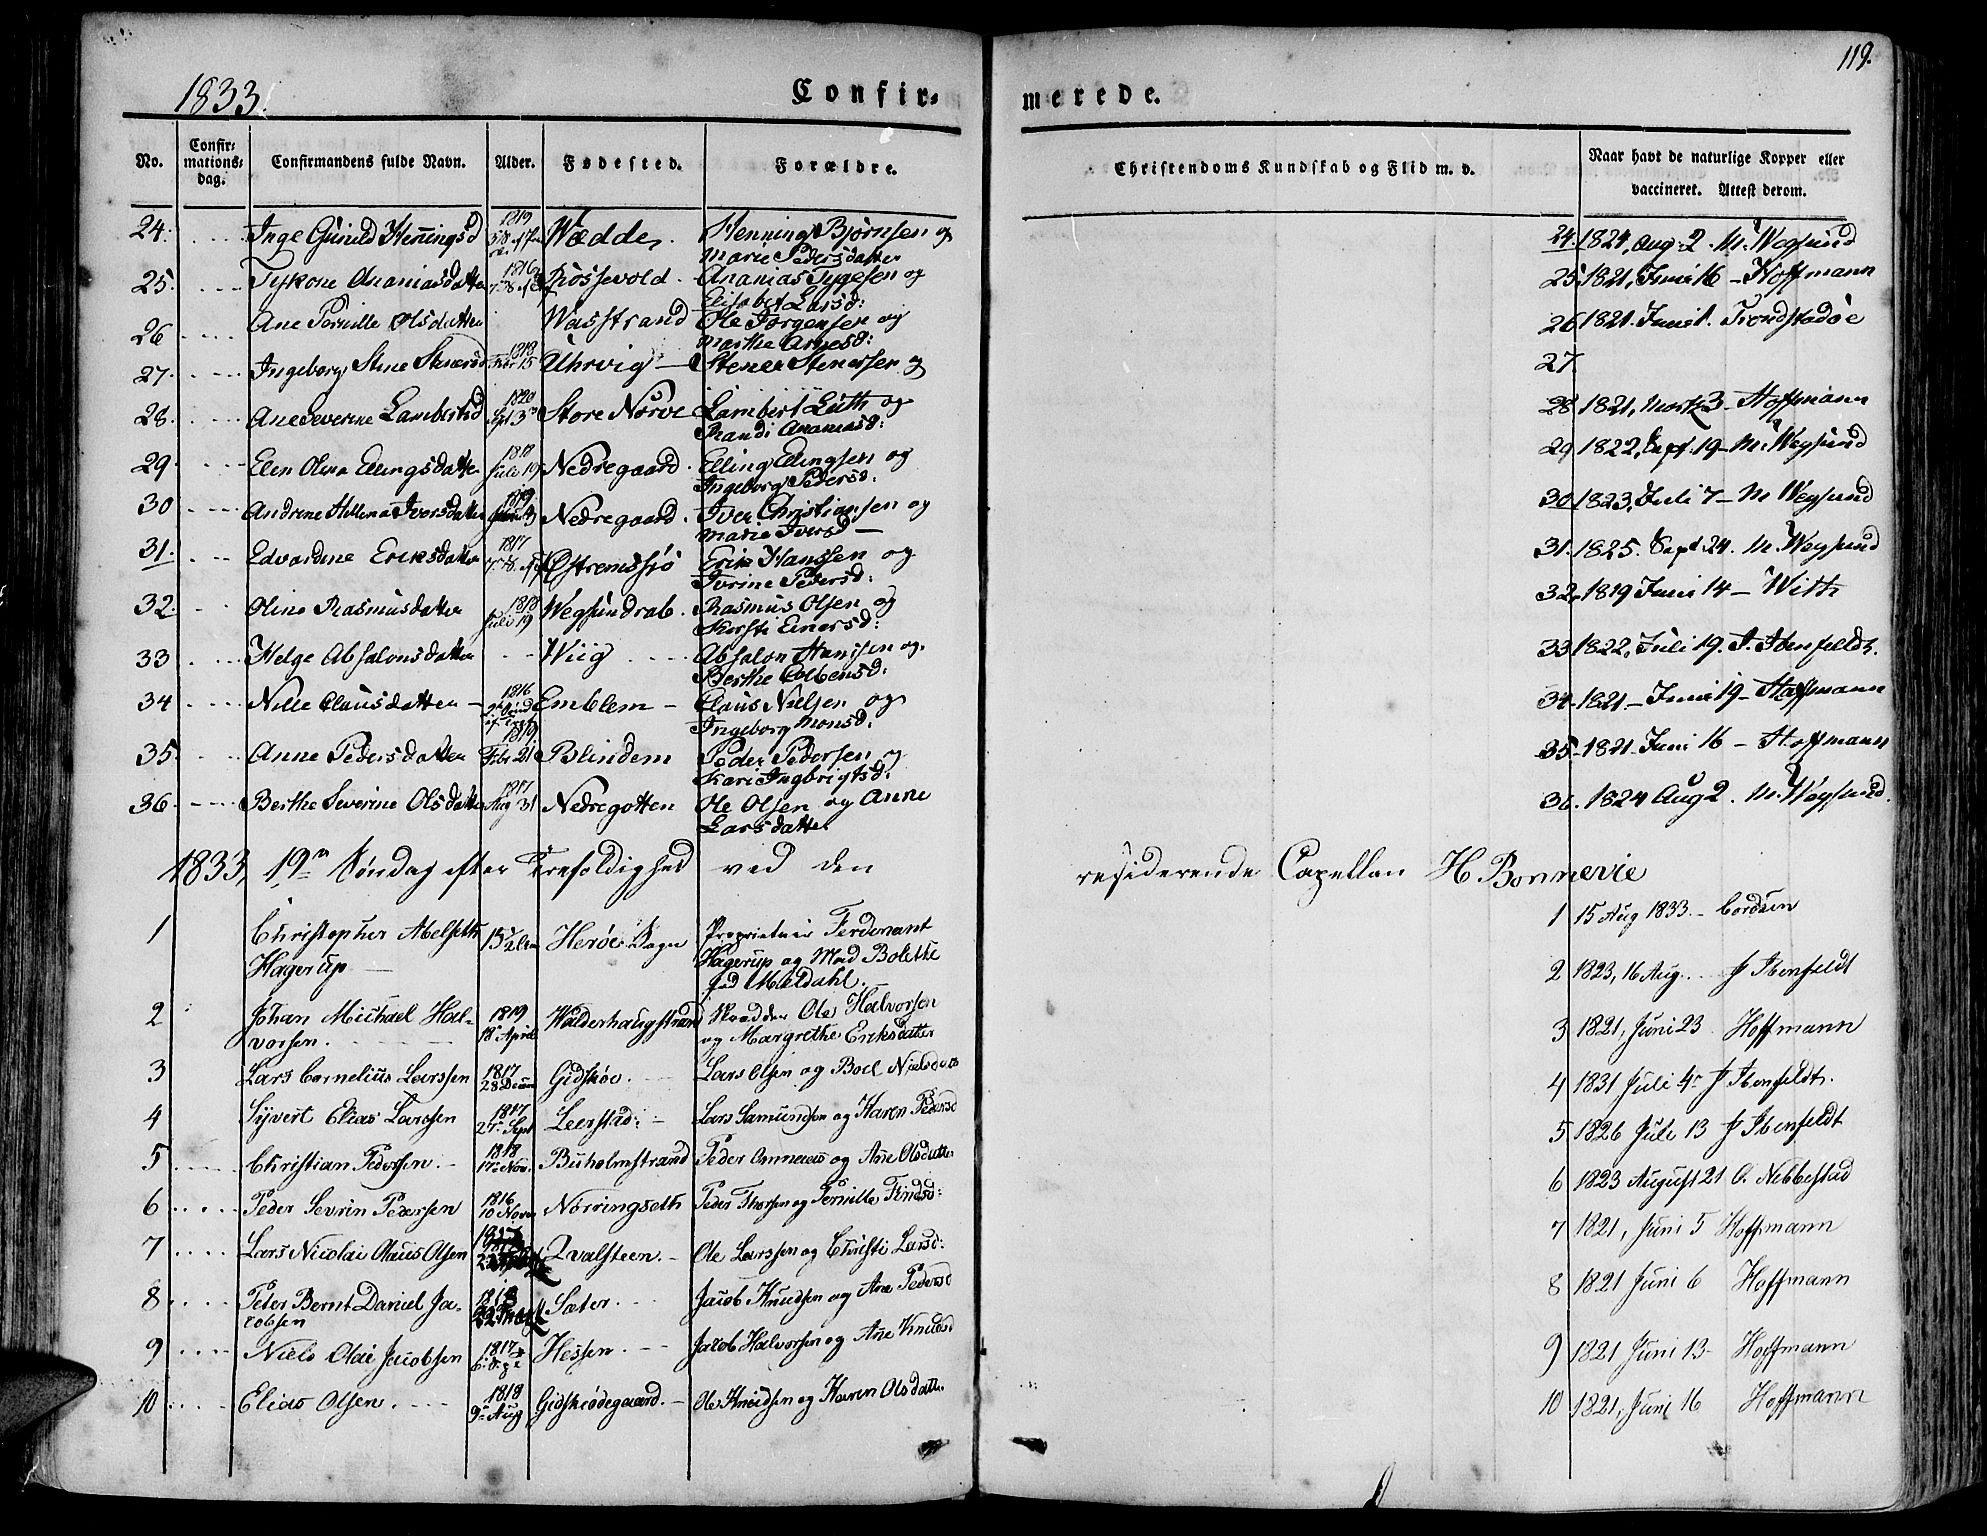 119.
1833. Confir- merede.
No. Confir-mations-dag. Confirmandens fulde Navn. Alder. Fødested. Forældre. Christendoms Kundskab og Flid m. v. Naar havt de naturlige Kopper eller vaccineret. Attest derom.
24. Inge Gunild Henningsd 1819 Wædde. Henning Bjørnsen og 24. 1824, Aug. 2. M. Wegsund
Marie Pedersdatter
25. Ananiasdatter 1816 Rossevold. Ananias Tygesen og 25. 1821, Juni 16 - Hoffmann
Elisabet Larsd:
26 Ane Pernille Olsdatter Wasstrand Ole Jørgensen og 26 1821. Juni 1. Trondstadøe
Marthe Arnesd:
27. Ingeborg Stine Stenersd 1818 Febr 15 Uhrvig - Stener Stenersen og 27.
28. Ane Severine Lambertsd 1820 Sept 3 Store Nørve Lambert Luth og 28 1821, Marts 3 - Hoffmann
Randi Ananiasd:
29 Elen Olina Ellingsdatter 1818 Juli 19 Nedregaard. Elling Ellingsen og 29 1822, Sept. 19 - M. Wegsund
Ingeborg Pedersd:
30 Andrine Hellena Iversdatter 1819 Nedregaard. Iver Christiansen og 30 1823, Juli 7 - M Wegsund
Marie Iversd -
31. Edvardine Eriksdatter 1817 Østremssjø Erik Hanssen og 31. 1825. Sept. 24. M. Wegsund
Ivrine Pedersd:
32. Oline Rasmusdatter 1818 Juli 19 Wegsundrab. Rasmus Olsen og 32, 1819 Juni 14 - With
Kersti Einersd:
33 Helge Absalonsdatter Wiig Absalon Hanssen og 33 1822, Juli 19. J. Ibenfeldt.
Berthe Colbensd:
34 Nille Clausdatter 1816 Emblem - Claus Nielsen og 34 1821 - Juni 19 - Hoffmann
Ingeborg Monsd:
35. Anne Pedersdatter 1819 Febr 21 Blindem Peder Pedersen og 35 - 1821. Juni 16 - Hoffmann
Kari Ingbrigtsd:
36. Berthe Severine Olsdatter 1817 Aug 31 Nedregotten Ole Olsen og Anne 36. 1824 Aug 2. M. Wegsund.
Larsdatter
1833, 19de Søndag efter Trefoldighed ved den residerende Capellan H Bonnevie
1 Christopher Abelseth 15 1/2 Herøe Sogn Proprietair Ferdenant 1 15 Aug 1833 - Cordsen
Hagerup Hagerup og Mad Bolette
fød Meldahl.
2 Johan Michael Hal- 1819 Walderhaugstrand Skredder Ole Halvorsen 2 1823, 16 Aug. J Ibenfeldt
vorsen. 18 April og Margrethe Eriksdatter
3 Lars Cornelius Larssen 1817 28 Decem Gidskøe. Lars Olsen og Boel Nielsdatter 3 1821, Juni 23 Hoffmann
4 Syvert Elias Larssen 1817 27 Sept Leerstad: - Lars Samundsen og Karen Pedersd 4 1831 Juli 4 J Ibenfeldt.
5 Christian Pedersen. - 1818 17 Nov. Buholmstrand Peder og Ane Olsdatter 5 1826 Juli 13 J Ibenfeldt
6 Peder Sevrin Pedersen 1816 10 Nover Nørringseth Peder Thorsen og Pernille Findsd: 6 1823 August 21 O. Nebbestad
7 Lars Nicolai Olaus Olsen Qvalsteen. - Ole Larssen og Christi Larsd: 7 1821, Juni 5 Hoffmann
8 Peter Bernt Daniel Ja- 1818 Sæter. Jacob Knudsen og Ane Pedersd 8 1821 Juni 6 Hoffmann
cobsen
9 Niels Olai Jacobsen 1817 Hessen. - Jacob Halvorsen og Ane Knudsd 9 1821 Juni 13 - Hoffmann
10 Elias Olsen. 1818 9 Aug Gidskødegaard. - Ole Knudsen og Karen Olsdatter 10 1821, Juni 16 Hoffmann